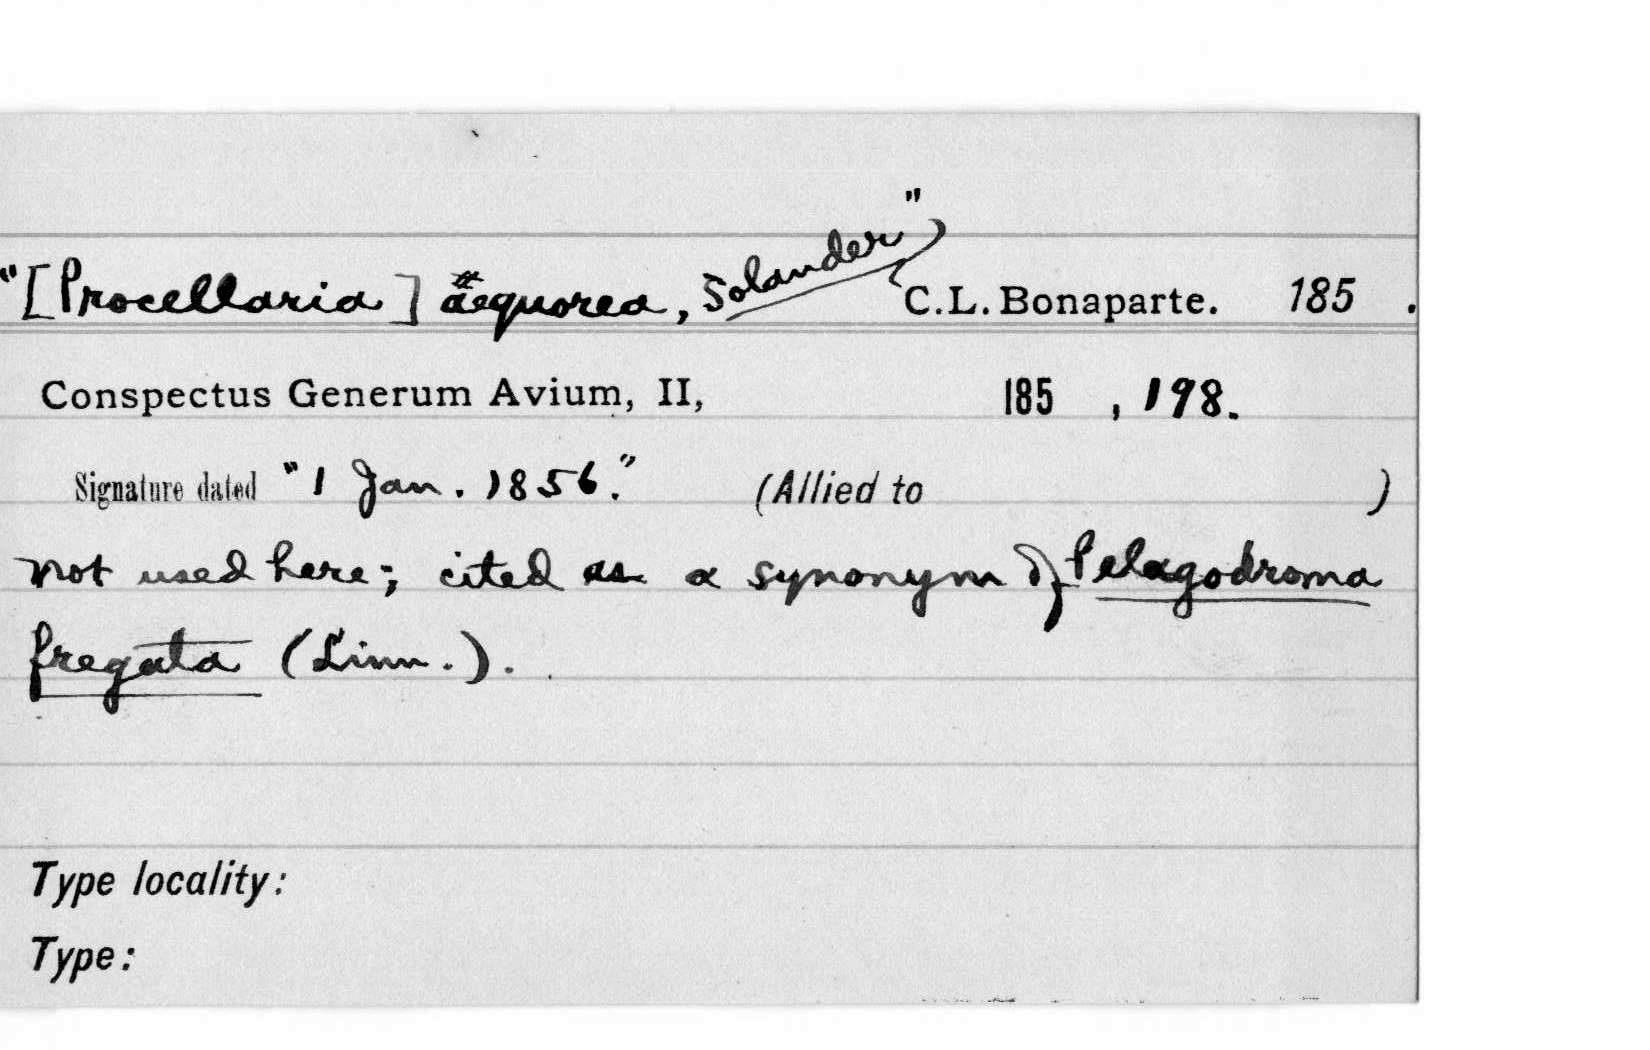 "[Procellaria] aequorea, Solander" C.L. Bonaparte. 185 .
Conspectus Generum Avium, II, 185 , 198.
Signature dated "1 Jan. 1856." (Allied to )
Not used here; cited as a synonym of Pelagodroma
fregata (Linn.).
Type locality:
Type: